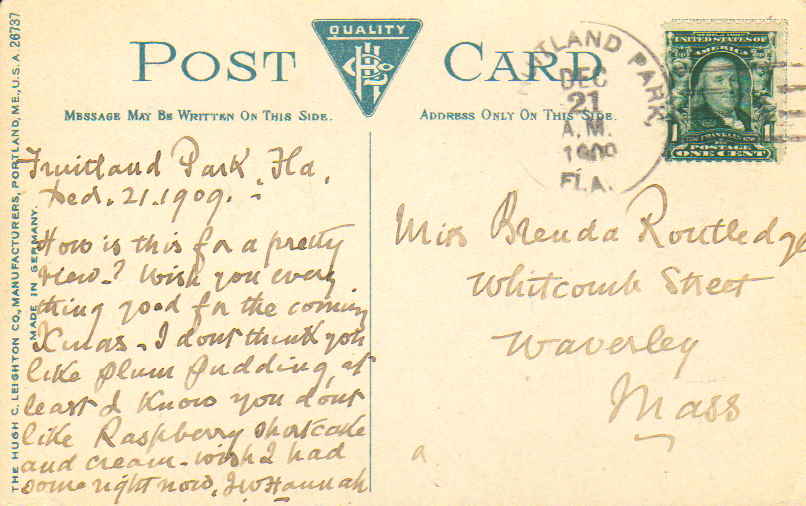 QUALITY
H C L Co
POST CARD
MESSAGE MAY BE WRITTEN ON THIS SIDE.
ADDRESS ONLY ON THIS SIDE.
THE HUGH C. LEIGHTON CO., MANUFACTURERS, PORTLAND, ME., U.S.A. 26737
MADE IN GERMANY.
FRUITLAND PARK,
DEC
21
A.M.
1909
FLA.
UNITED STATES OF
AMERICA
FRANKLIN
POSTAGE
1 ONE CENT 1
Fruitland Park, Fla,
Ded. 21. 1909.
How is this for a pretty
view-? Wish you every
thing good for the coming
Xmas - I dont think you
like plum pudding, at
least I know you dont
like Raspberry shortcake
and cream - wish I had
some right now. J.W. Hannah
Miss Brenda Routledge
Whitcomb Street
Waverley
Mass
a